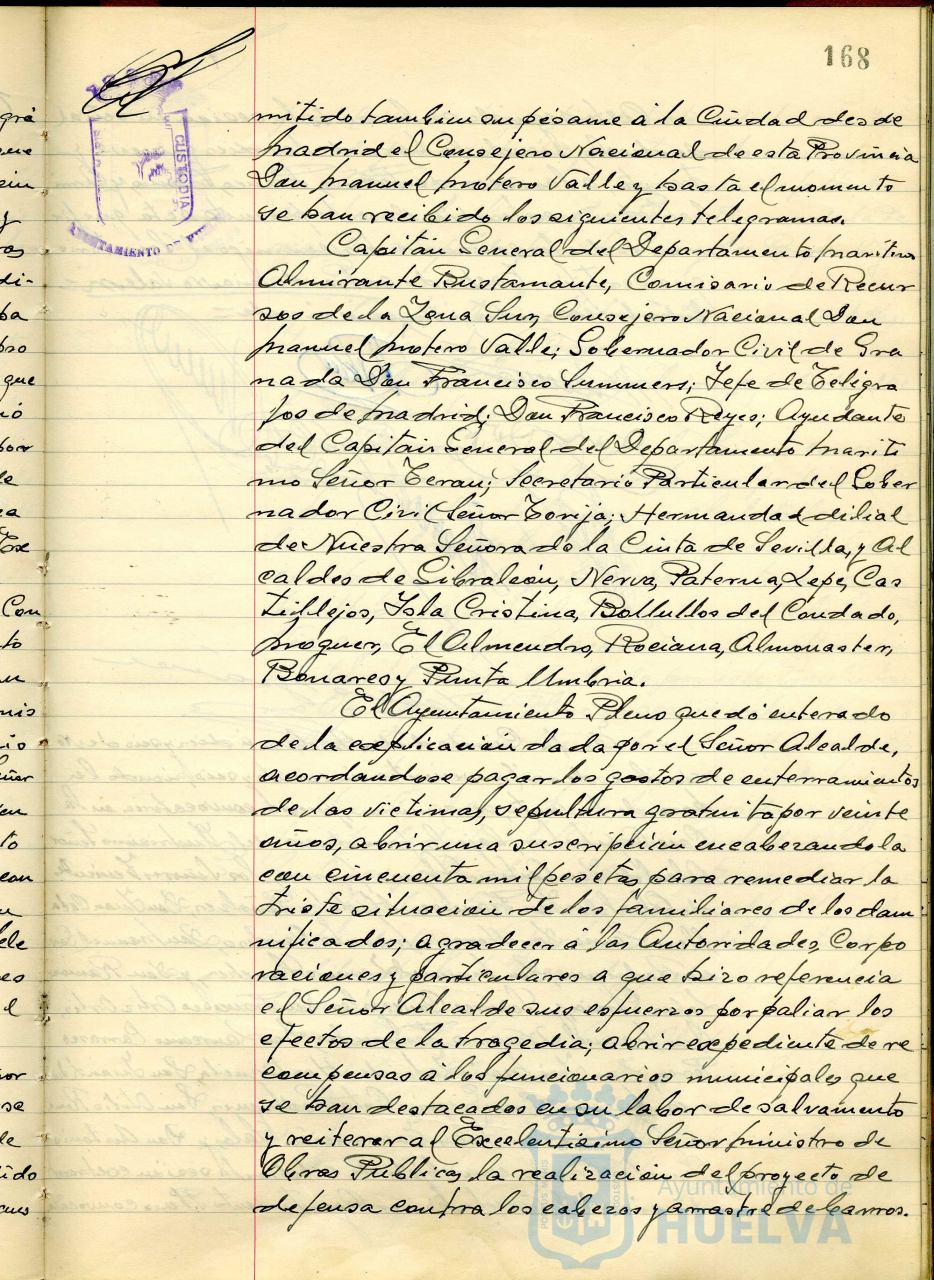 168
CUSTODIA
AYUNTAMIENTO DE
mitido tambien su pésame à la Ciudad desde
Madrid el Consejero Nacional de esta Provincia
Don Manuel Motero Valle y hasta el momento
se han recibido los siguientes telegramas.
Capitán General del Departamento Maritimo
Almirante Bustamante, Comisario de Recur
sos de la Zona Sur, Consejero Nacional Don
Manuel Motero Valle; Gobernador Civil de Gra
nada Don Francisco Summers; Jefe de Telégra
fos de Madrid; Don Francisco Reyes; Ayudante
del Capitán General del Departamento Mariti
mo Señor Teran; Secretario Particular del Gober
nador Civil Señor Torija; Hermandad filial
de Nuestra Señora de la Cinta de Sevilla, y Al
caldes de Gibraleón, Nerva, Paterna, Lepe, Cas
tillejos, Isla Cristina, Bollullos del Condado,
Moguer, El Almendro, Rociana, Almonaster,
Bonares y Punta Umbria.
El Ayuntamiento Pleno quedó enterado
de la explicación dada por el Señor Alcalde,
acordandose pagar los gastos de enterramientos
de las victimas, sepultura gratuita por veinte
años, abrir una suscripción encabezandola
con cincuenta mil pesetas para remediar la
triste situación de los familiares de los dam
nificados; agradecer à las Autoridades, Corpo
raciones y particulares a que hizo referencia
el Señor Alcalde sus esfuerzos por paliar los
efectos de la tragedia; abrir expediente de re
compensas à los funcionarios municipales que
se han destacados en su labor de salvamento
y reiterar al Excelentisimo Señor Ministro de
Obras Públicas, la realización del proyecto de
defensa contra los cabezos y arrastre de barros.
Ayuntamiento de
HUELVA